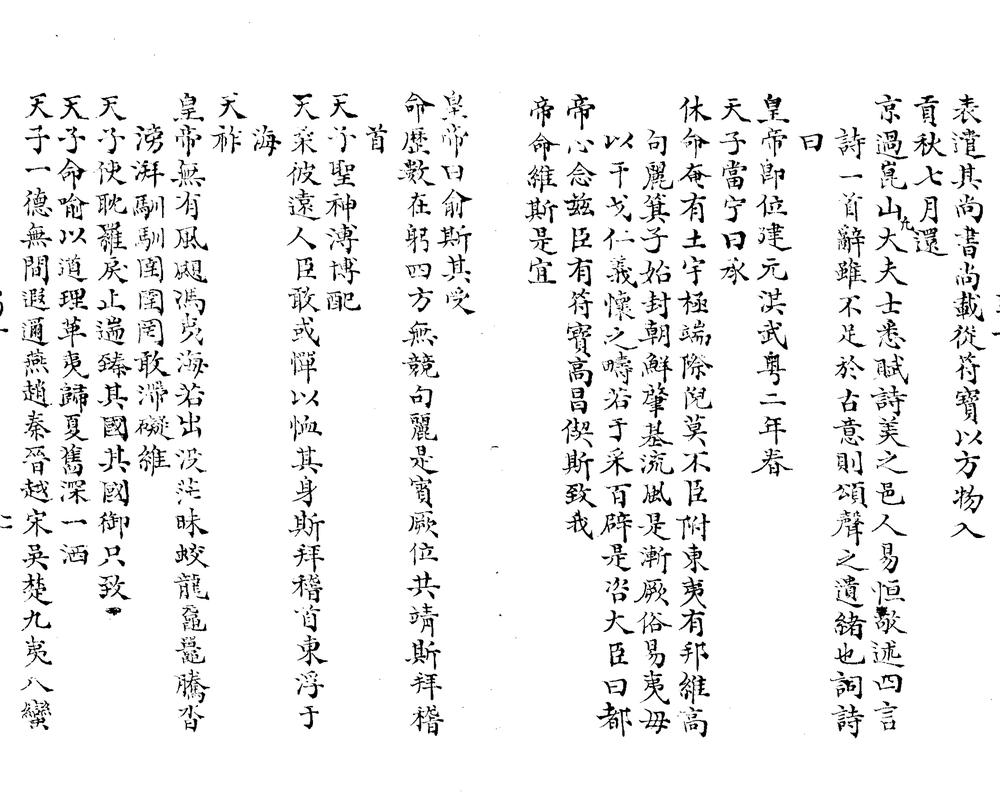 表遣其尚書尚載從符寶以方物入
貢秋七月還
京過崑山大夫士悉賦詩美之邑人易恒敬述四言
九
詩一首辭雖不足於古意則頌聲之遺緒也詞詩
曰
皇帝即位建元洪武粤二年春
天子當宁曰承
休命奄有土宇極端際倪莫不臣附東夷有邦維高
句麗箕子始封朝鮮肇基流風是漸厥俗易夷毋
以干戈仁義懷之疇若予采百辟是咨大臣曰都
帝心念兹臣有符寶高昌偰斯致我
帝命維斯是宜
皇帝曰俞斯其受
命歷數在躬四方無競句麗是賓厥位共靖斯拜稽
首
天子聖神溥博配
天采彼遠人臣敢或憚以恤其身斯拜稽首東浮于
海
天祚
皇帝無有風颶馮夷海若出没茫昧蛟龍黿鼉騰沓
湧湃馴馴圉圉罔敢滯礙維
天子使耽羅戾止遄臻其國其國御只致
天子命喻以道理革夷歸夏舊深一洒
天子一德無間遐邇燕趙秦晉越宋吳楚九夷八蠻